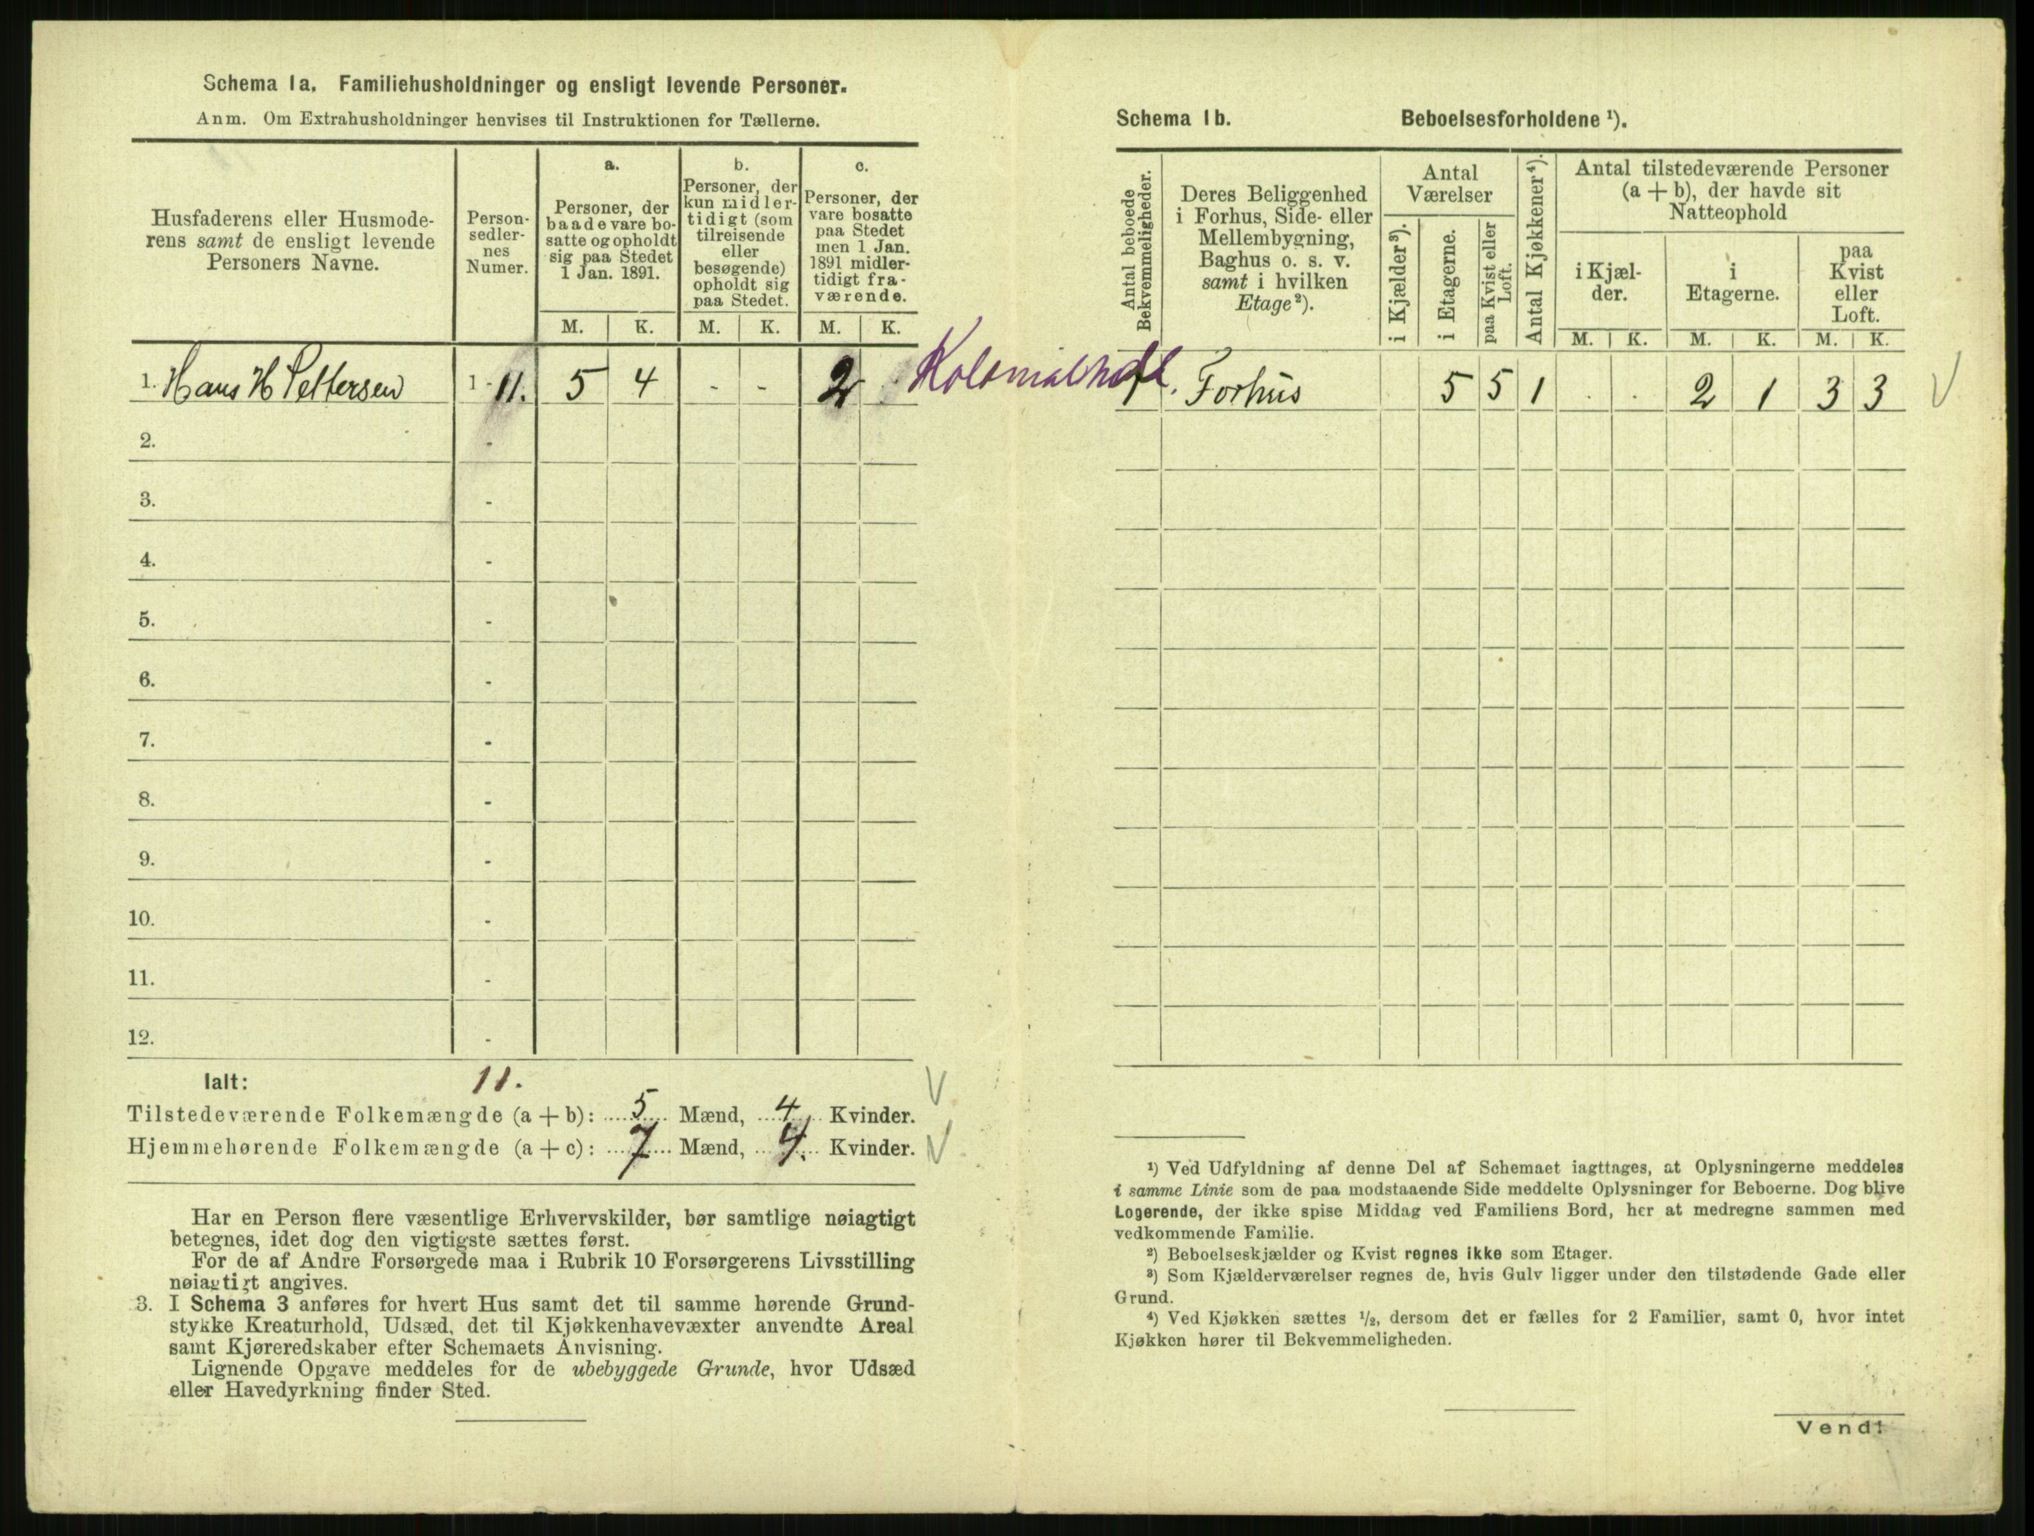 Schema 1a. Familiehusholdninger og ensligt levende Personer.
Anm. Om Extrahusholdninger henvises til Instruktionen for Tællerne.
Husfaderens eller Husmode-
rens samt de ensligt levende
Personers Navne.
Person-
sedler-
nes
Numer.
a.
Personer, der
baade vare bo-
satte og opholdt
sig paa Stedet
1 Jan. 1891.
M. K.
b.
Personer, der
kun midler-
tidigt (som
tilreisende
eller
besøgende)
opholdt sig
paa Stedet.
M. K.
c.
Personer, der
vare bosatte
paa Stedet
men 1 Jan.
1891 midler-
tidigt fra-
værende.
M. K.
1. Hans H Pettersen 1 - 11. 5 4 - - 2
2. -
3. -
4. -
5. -
6. -
7. -
8. -
9. -
10. -
11. -
12. -
Ialt: 11.
Tilstedeværende Folkemængde (a + b): 5 Mænd, 4 Kvinder.
Hjemmehørende Folkemængde (a + c): 7 Mænd, 4 Kvinder.
Har en Person flere væsentlige Erhvervskilder, bør samtlige nøiagtigt
betegnes, idet dog den vigtigste sættes først.
For de af Andre Forsørgede maa i Rubrik 10 Forsørgerens Livsstilling
nøiagtigt angives.
3. I Schema 3 anføres for hvert Hus samt det til samme hørende Grund-
stykke Kreaturhold, Udsæd, det til Kjøkkenhavevæxter anvendte Areal
samt Kjøreredskaber efter Schemaets Anvisning.
Lignende Opgave meddeles for de ubebyggede Grunde, hvor Udsæd
eller Havedyrkning finder Sted.
Schema 1b. Beboelsesforholdene ¹).
Antal beboede
Bekvemmeligheder.
Deres Beliggenhed
i Forhus, Side- eller
Mellembygning,
Baghus o. s. v.
samt i hvilken
Etage ²).
Antal
Værelser
i Kjælder ³).
i Etagerne.
paa Kvist eller
Loft.
Antal Kjøkkener ⁴).
Antal tilstedeværende Personer
(a + b), der havde sit
Natteophold
i Kjæl-
der.
M. K.
i
Etagerne.
M. K.
paa
Kvist
eller
Loft.
M. K.
Forhus 5 5 1 . . 2 1 3 3
¹) Ved Udfyldning af denne Del af Schemaet iagttages, at Oplysningerne meddeles
i samme Linie som de paa modstaaende Side meddelte Oplysninger for Beboerne. Dog blive
Logerende, der ikke spise Middag ved Familiens Bord, her at medregne sammen med
vedkommende Familie.
²) Beboelseskjælder og Kvist regnes ikke som Etager.
³) Som Kjælderværelser regnes de, hvis Gulv ligger under den tilstødende Gade eller
Grund.
⁴) Ved Kjøkken sættes ½, dersom det er fælles for 2 Familier, samt 0, hvor intet
Kjøkken hører til Bekvemmeligheden.
Vend!